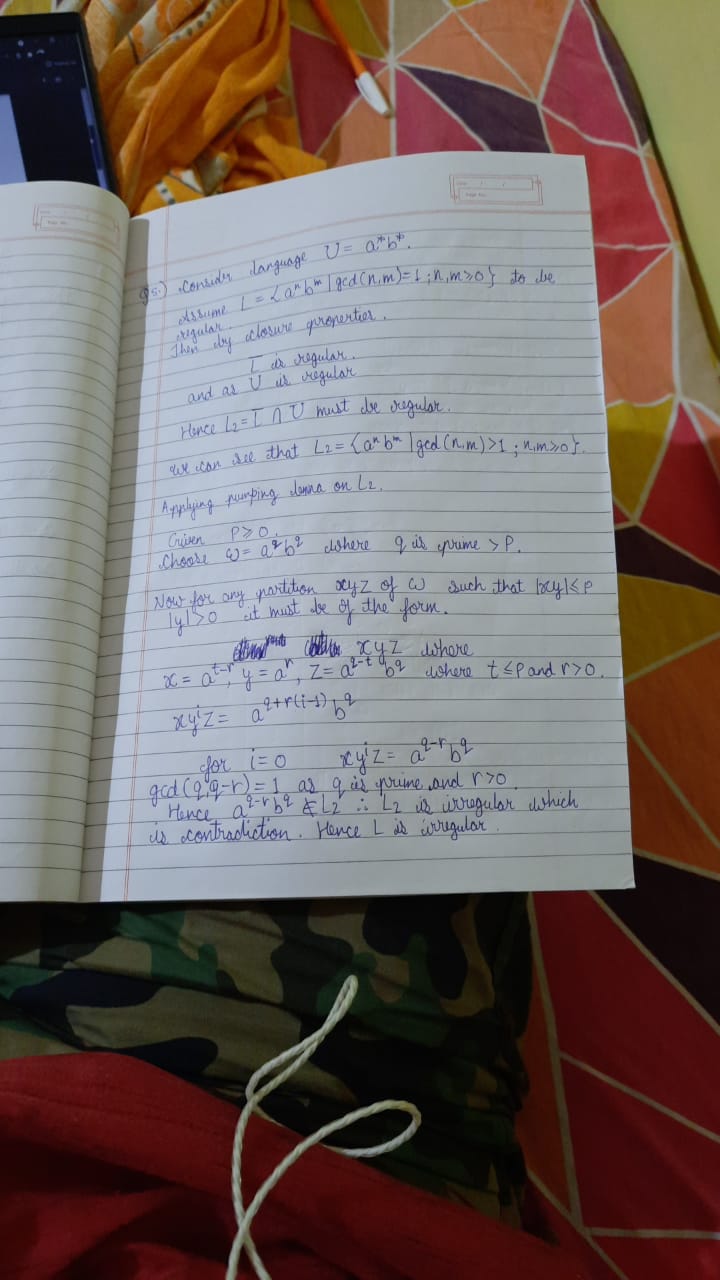 Q5.) Consider language U = a*b*.
Assume L = {aⁿbᵐ | gcd(n,m)=1 ; n,m≥0} to be
regular.
Then by closure properties.
L̅ is regular.
and as U is regular
Hence L₂ = L̅ ∩ U must be regular.
we can see that L₂ = {aⁿbᵐ | gcd(n,m)>1 ; n,m≥0}.
Applying pumping lemma on L₂.
Given P≥0.
Choose ω = a^q b^q where q is prime > P.
Now for any partition xyz of ω such that |xy|≤p
|y|>0 it must be of the form.
xyz where
x = a^{t-r}, y = a^r, z = a^{q-t} b^q where t≤p and r>0.
xy^i z = a^{q+r(i-1)} b^q
for i=0 xy^i z = a^{q-r} b^q
gcd(q,q-r) = 1 as q is prime and r>0.
Hence a^{q-r} b^q ∉ L₂ ∴ L₂ is irregular which
is contradiction. Hence L is irregular.